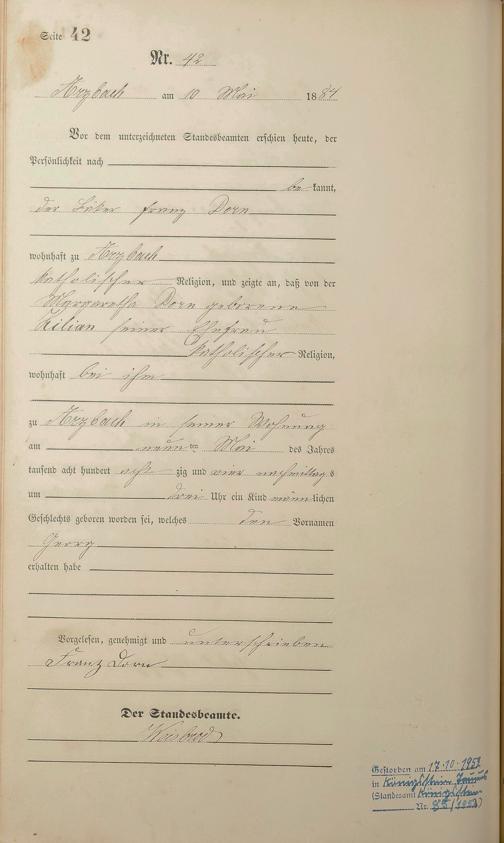 Seite 42
Nr. 42
Arzbach am 10 Mai 1884
Vor dem unterzeichneten Standesbeamten erschien heute, der
Persönlichkeit nach
be kannt,
der Franz Dorn
wohnhaft zu Arzbach
katholischer Religion, und zeigte an, daß von der
Margaretha Dorn geborene
Kilian seiner Ehefrau
katholischer Religion,
wohnhaft bei ihm
zu Arzbach in seiner Wohnung
am neunten Mai des Jahres
tausend acht hundert acht zig und vier nachmittags
um drei Uhr ein Kind männlichen
Geschlechts geboren worden sei, welches den Vornamen
Georg
erhalten habe
Vorgelesen, genehmigt und unterschrieben
Franz Dorn
Der Standesbeamte.
Gestorben am 17.10.195
in Königstein Taunus
(Standesamt Königstein
Nr. 85